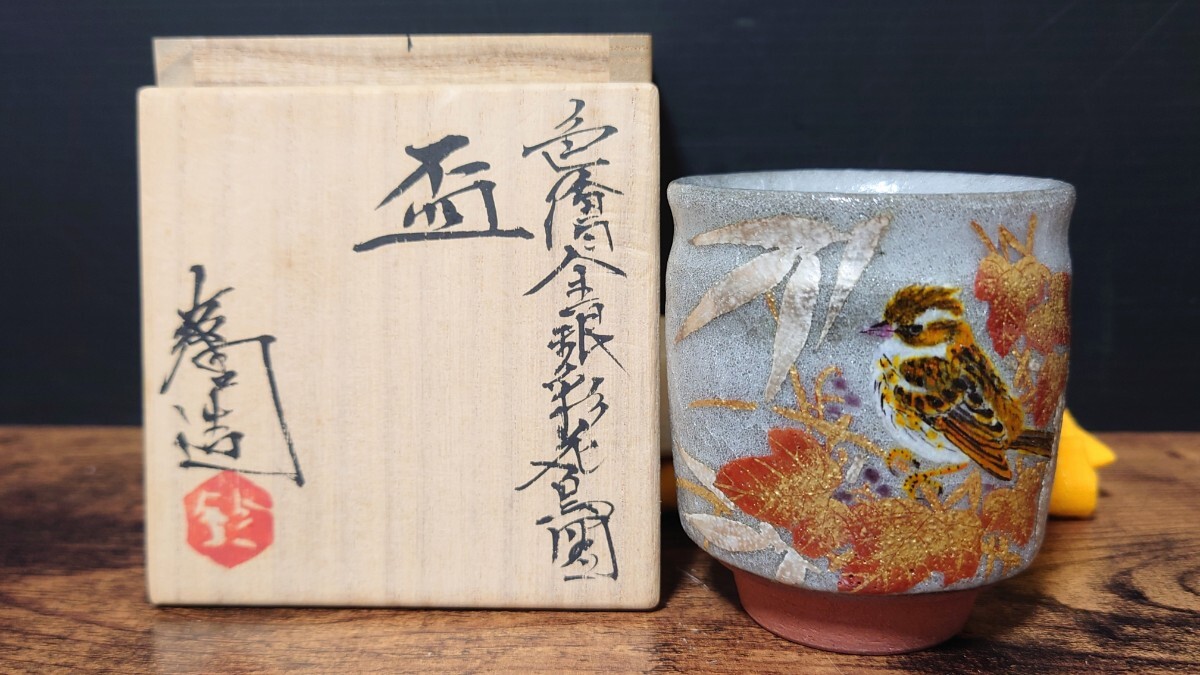 色絵金銀彩花鳥図
盃
造
鈴